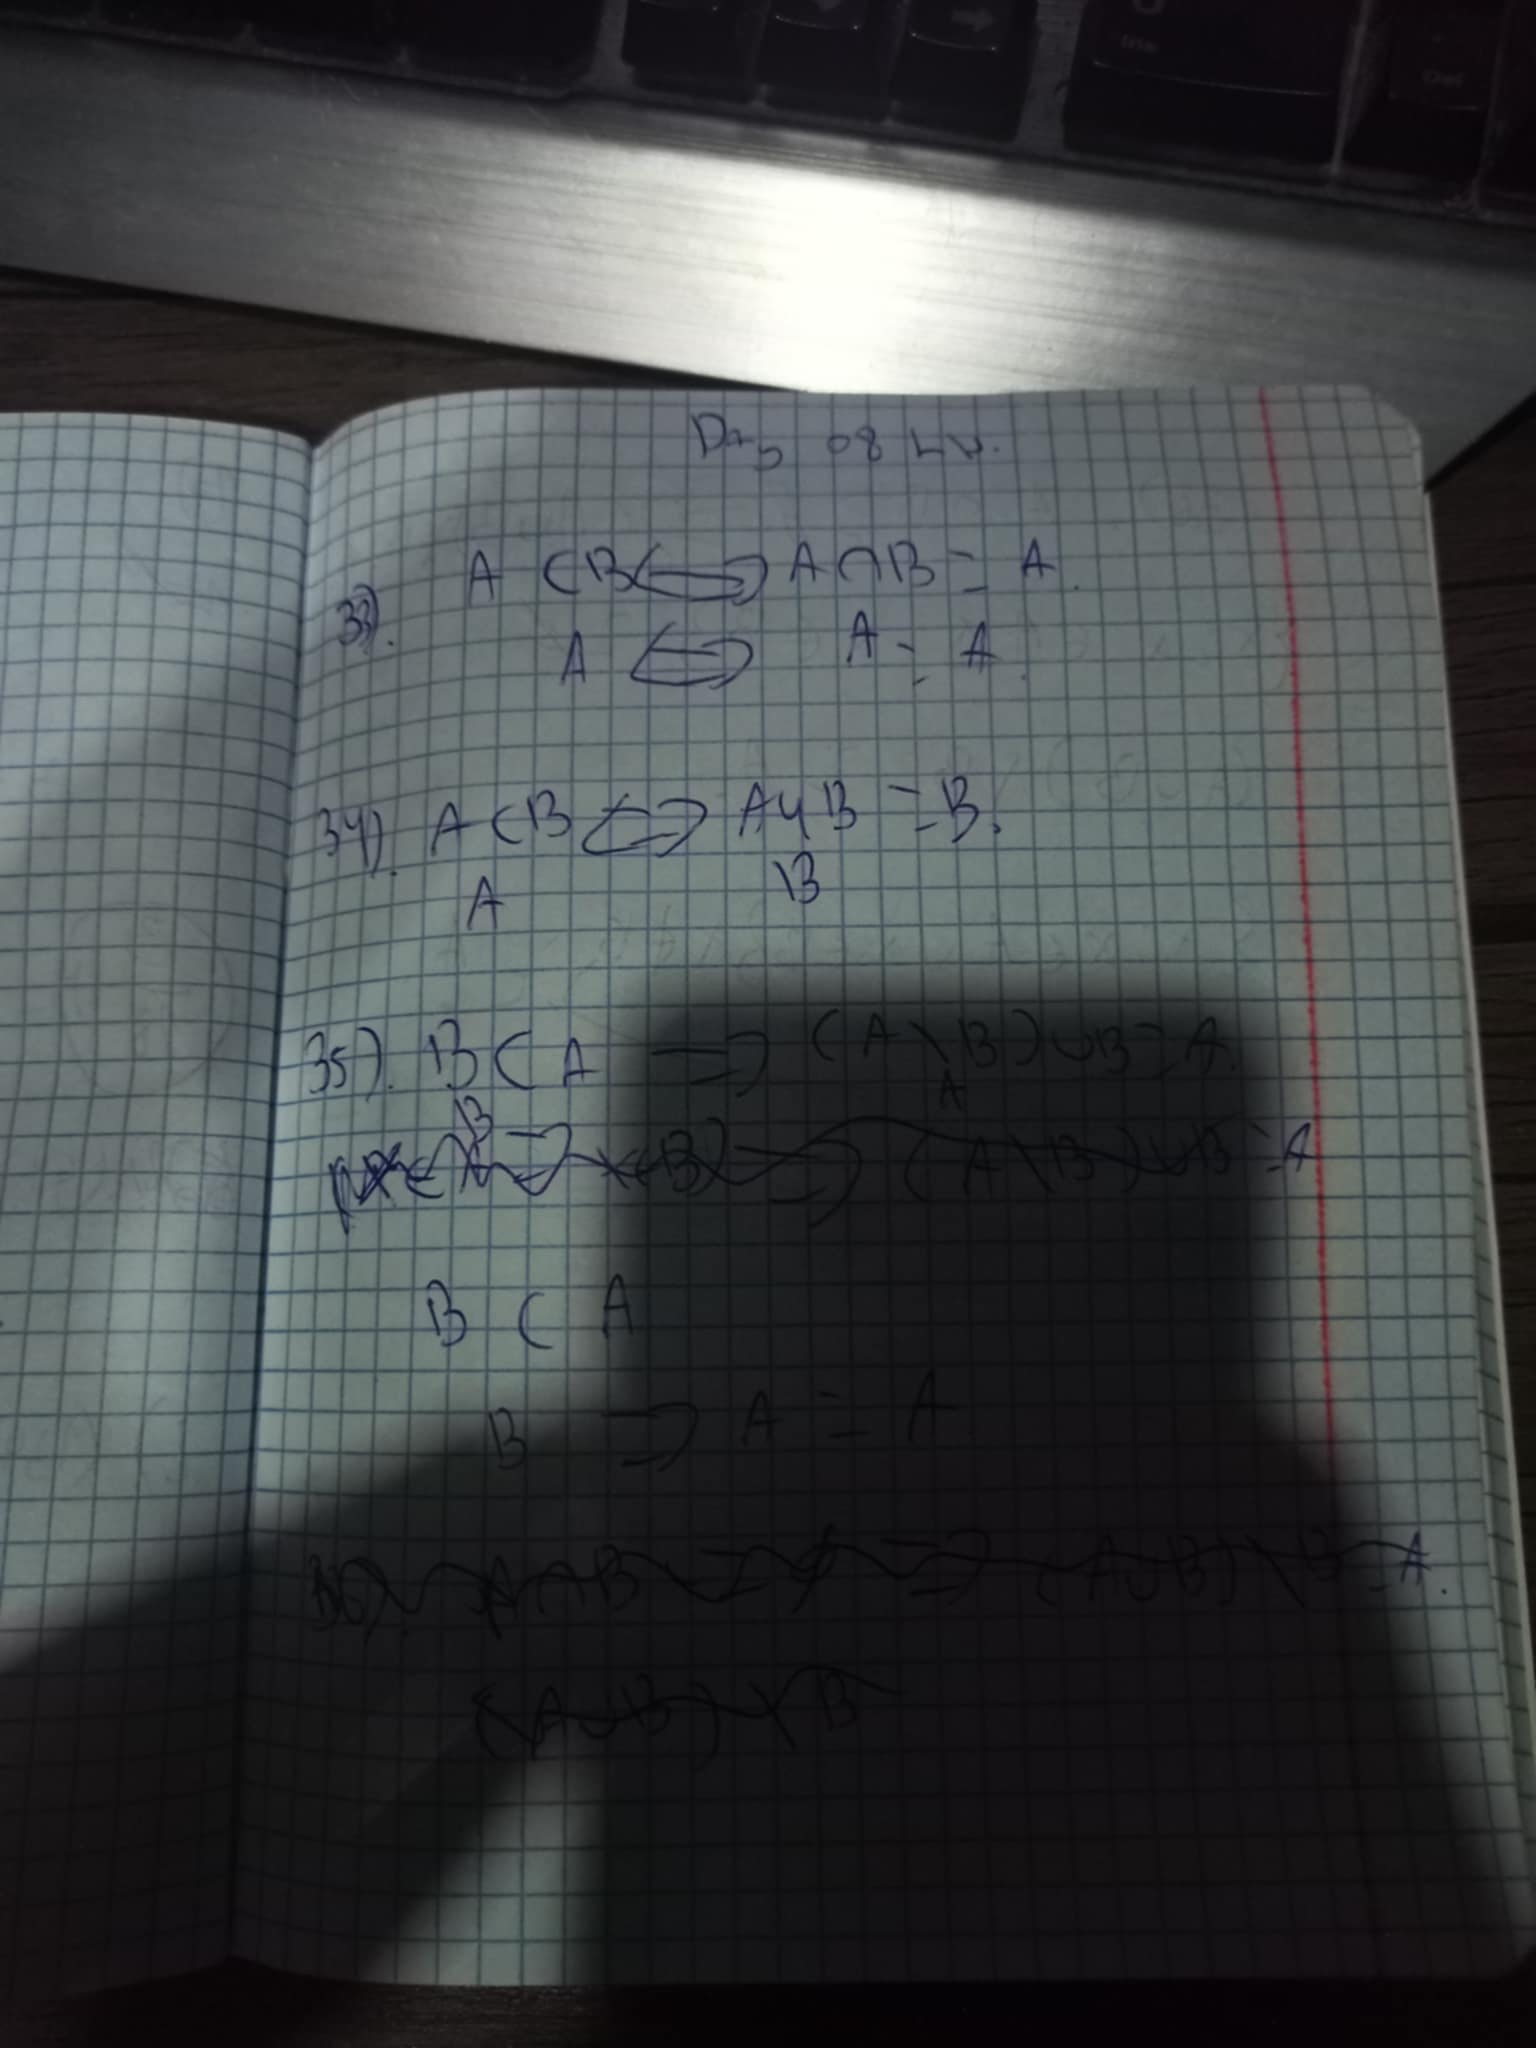 Day 08 LW.
33). A ⊂ B ⟺ A ∩ B = A.
A ⟺ A = A.
34). A ⊂ B ⟺ A ∪ B = B.
A B
35). B ⊂ A ⟹ (A \ B) ∪ B = A.
B A
(A \ B) ∪ B = A
B ⊂ A
B ⟹ A = A
36). A ∩ B = ∅ ⟹ (A ∪ B) \ B = A.
(A ∪ B) \ B